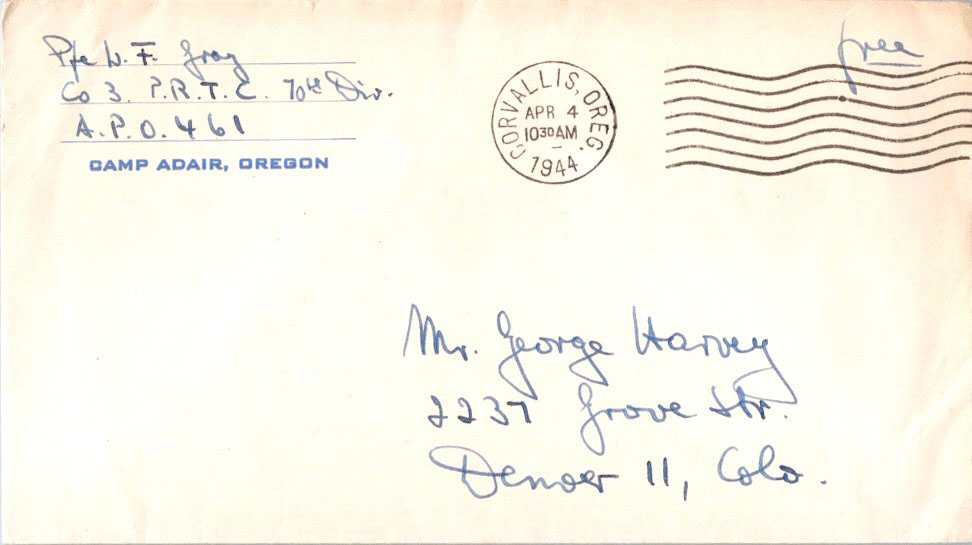 Pfc W. F. Gray
Co 3. P.R.T.C. 70th Div.
A.P.O. 461
CAMP ADAIR, OREGON
CORVALLIS, OREG.
APR 4
1030AM
1944
free
Mr. George Harvey
2237 Grove Str.
Denver 11, Colo.